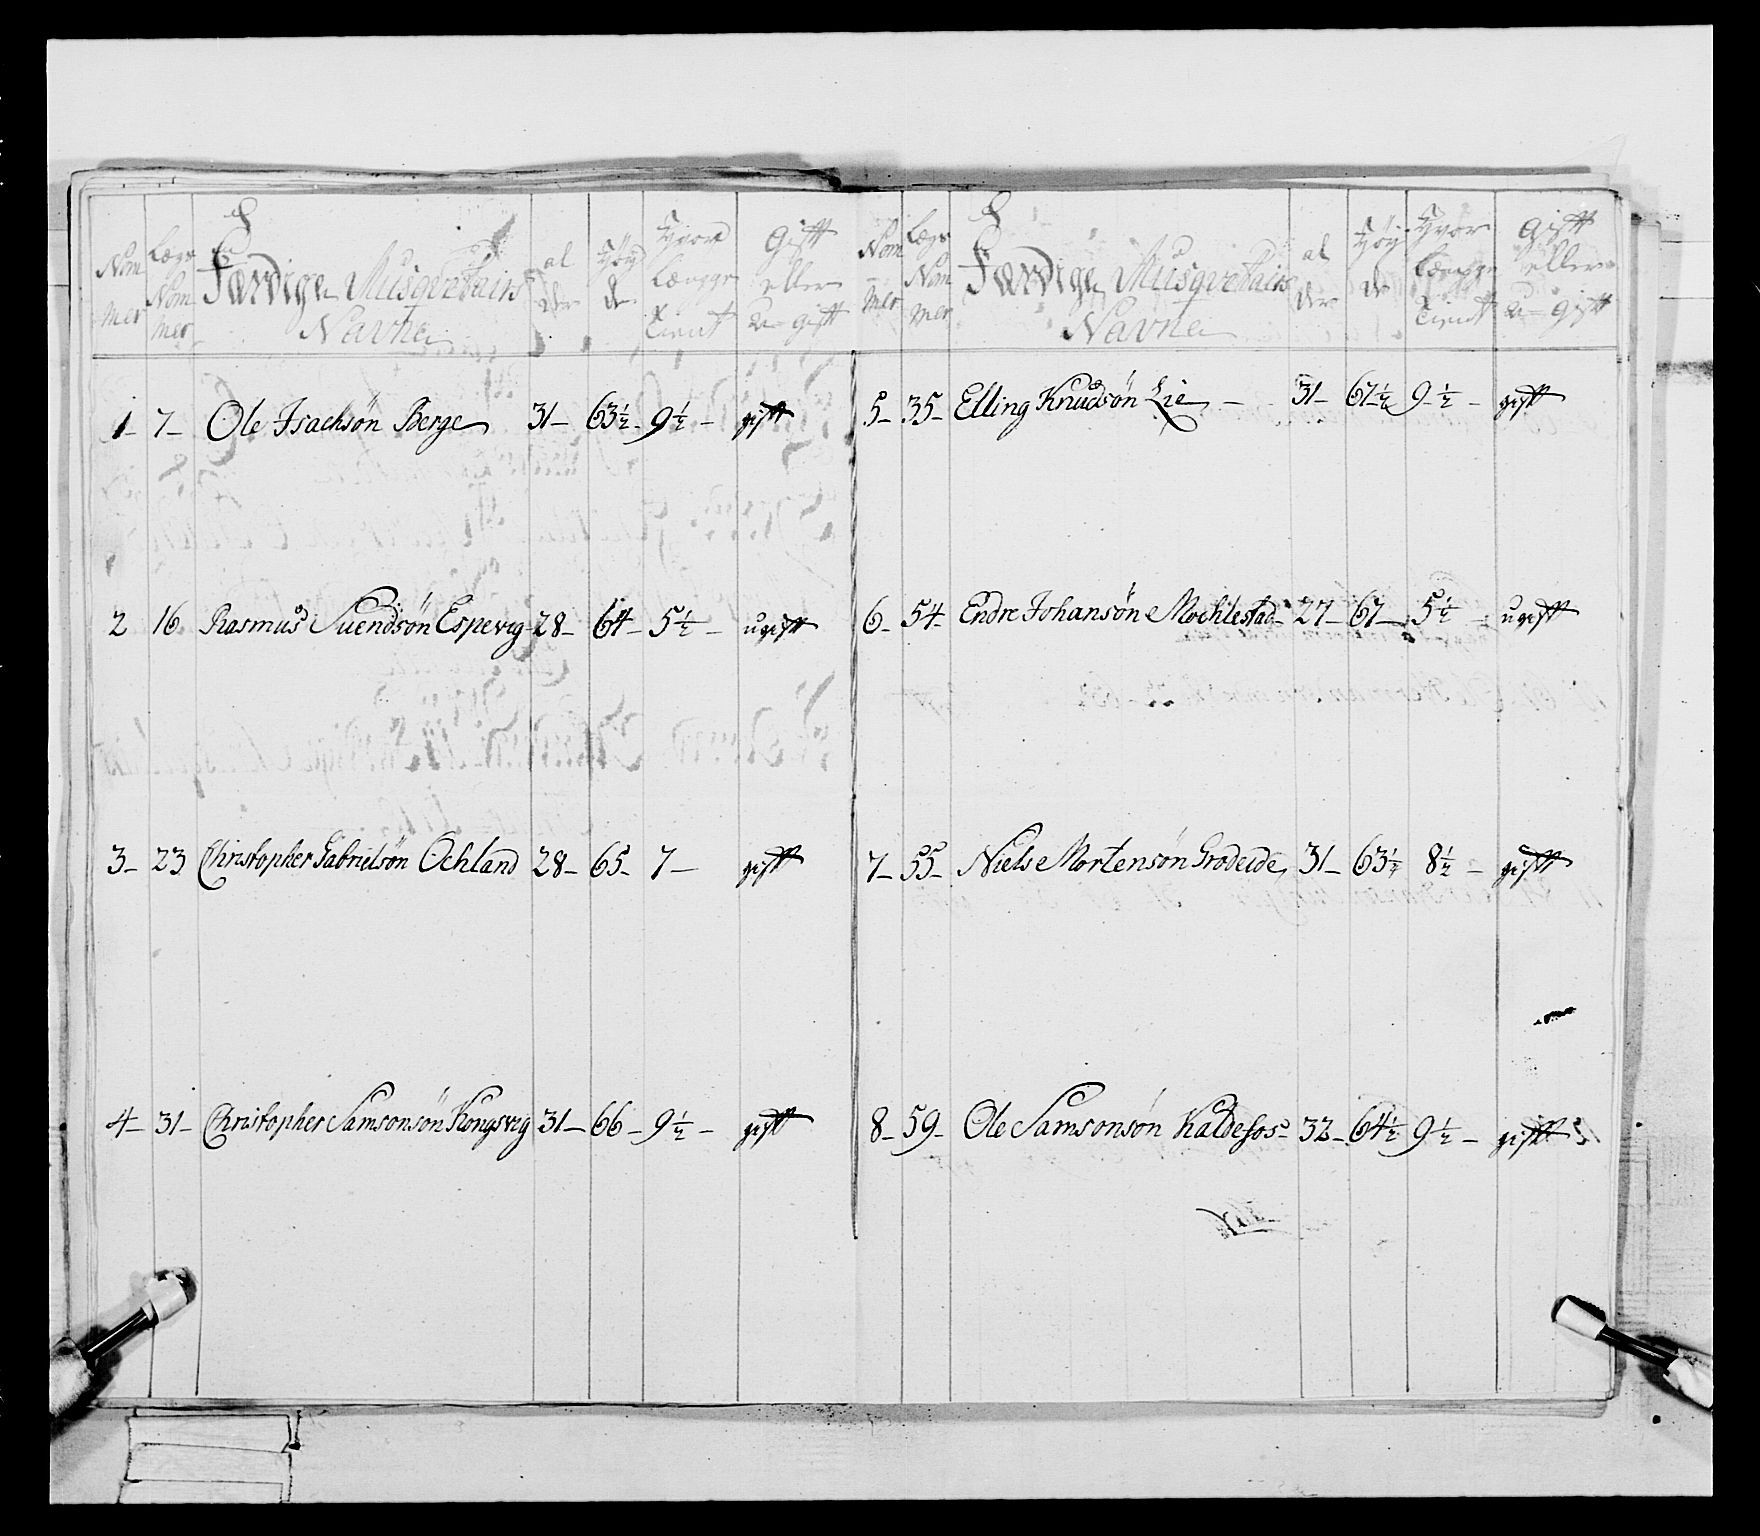 Nom
mer
Lægs
Nom
mer
Færdige Musqvetairs
Navne
al
der
Höy
de
Hvor
Længge
Tient
Gift
eller
U-gift
1- 7- Ole Isachsön Berge 31- 63½- 9½- gift
2 16 Rasmus Suendsön Espevig 28- 64- 5½- ugift
3- 23 Christopher Gabrielsön Ochland 28- 65- 7- gift
4- 31- Christopher Samsonsön Kongsvig 31- 66- 9½- gift
Nom
mer
Lægs
Nom
mer
Færdige Musqvetairs
Navne
al
der
Höy
de
Hvor
Længge
Tient
Gift
eller
U-gift
5- 35- Elling Knudsön Lie- 31- 67½ 9½- gift
6- 54- Endre Johansön Mochlestad- 27- 67- 5½- ugift
7- 55- Niels Mortensön Grodeide 31- 63½ 8½- gift
8- 59- Ole Samsonsön Kaldefos- 32- 64½ 9½- gift